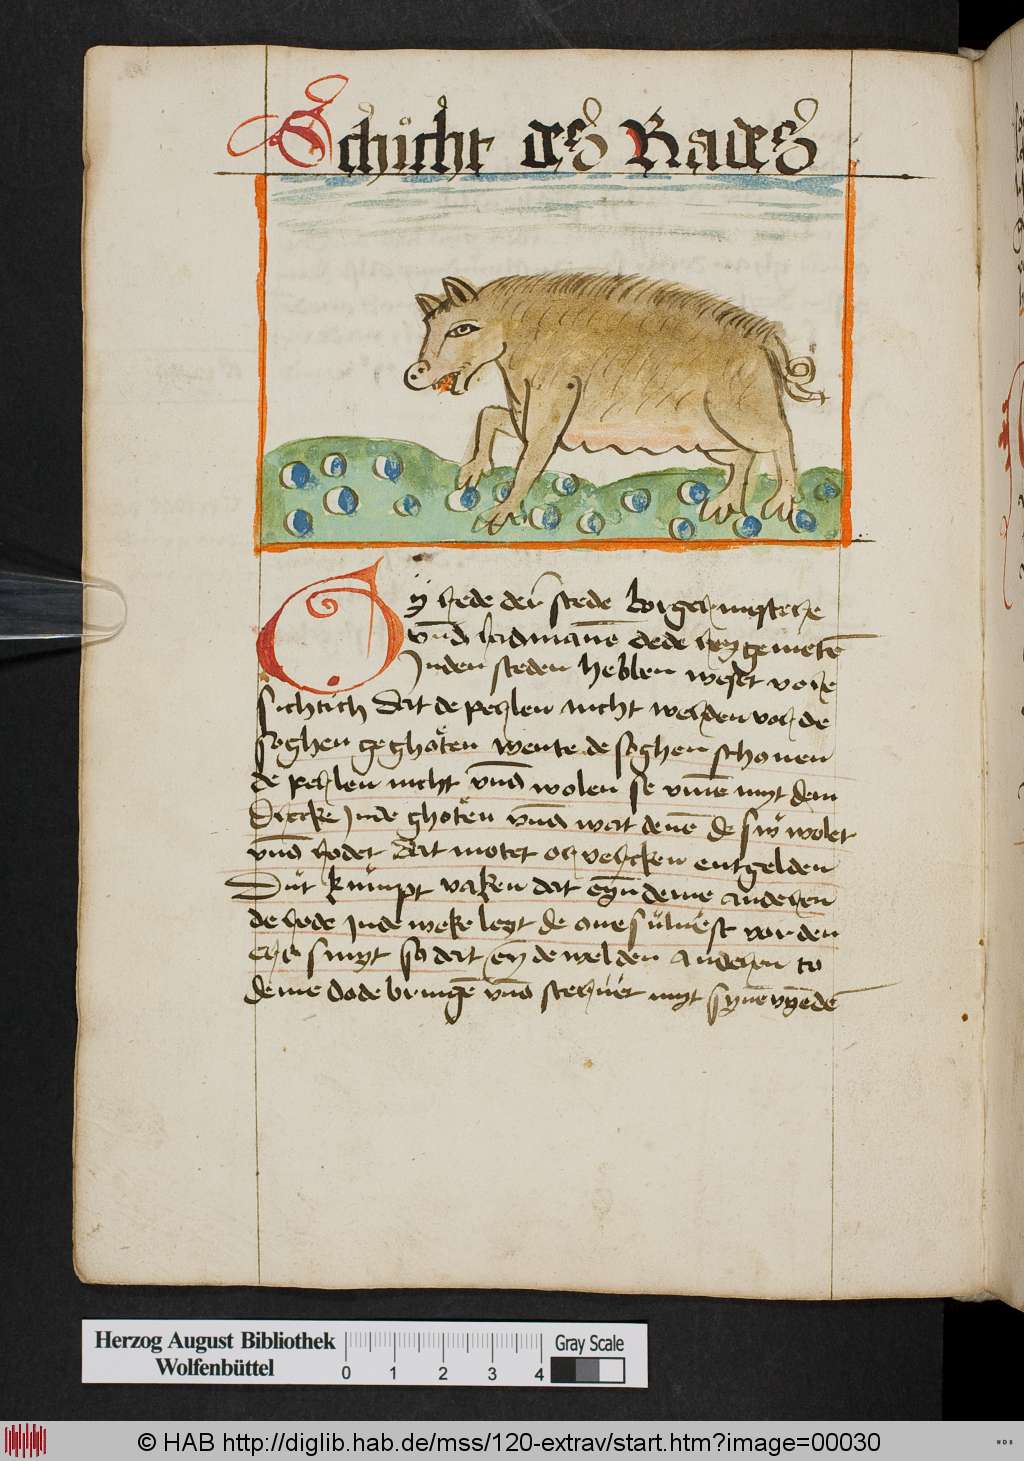 Schicht des Rades
O
ÿ rede der stede borgermestere
vnd radmanē dede reygementē
Jn den steden hebben weset vore
sichtich dat de perlen nicht werden vor de
soghen gegoten wente de soghen schonen
de perlen nicht vnd wolen se vmē myt dem
drecke Jn de ghoten vnd wat denē de sw wolet
vnd rodet dat motet or vercken entgelden
Dut kumpt vaken dat eyn deme anderen
de rede Jn de weke leyt de one suluest vor den
ers smyt so dat eyn de welden anderen to
deme dode bringē vnd steruet myt synē vyēdē
Herzog August Bibliothek
Wolfenbüttel
0 1 2 3 4
Gray Scale
© HAB http://diglib.hab.de/mss/120-extrav/start.htm?image=00030